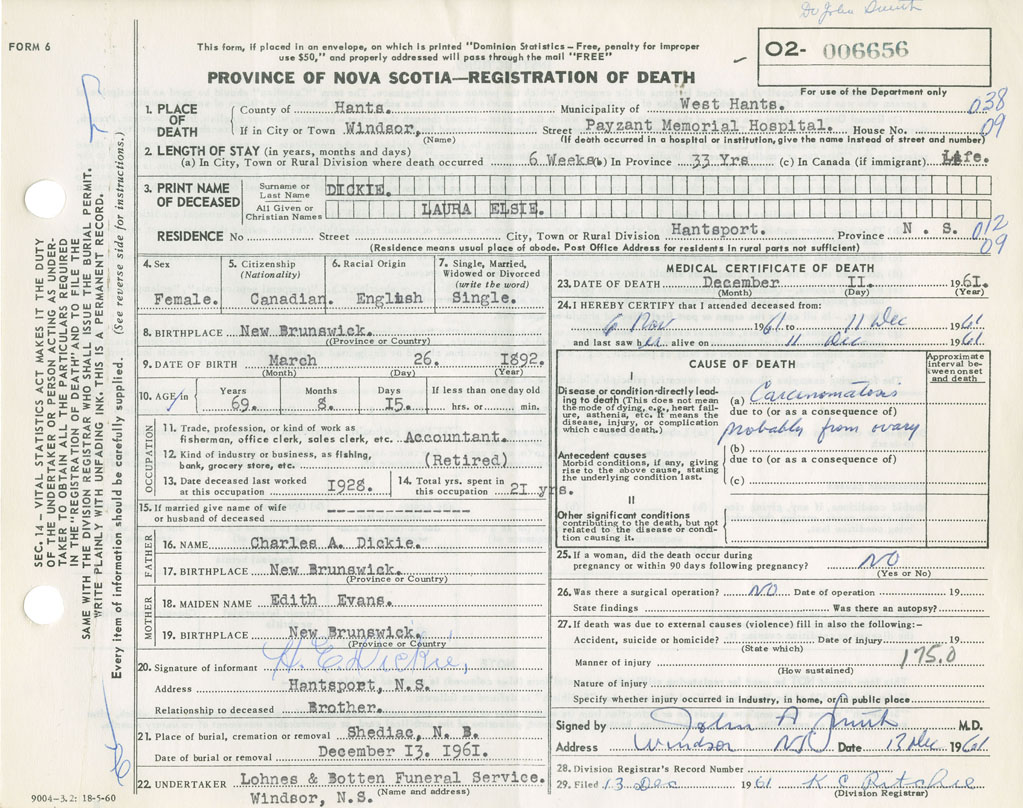 Dr John Smith
FORM 6
This form, if placed in an envelope, on which is printed "Dominion Statistics – Free, penalty for improper
use $50," and properly addressed will pass through the mail "FREE"
O2- 006656
For use of the Department only
PROVINCE OF NOVA SCOTIA—REGISTRATION OF DEATH
1. PLACE OF DEATH
County of Hants. Municipality of West Hants. 038
If in City or Town Windsor, Street Payzant Memorial Hospital. House No. 09
(Name) (If death occurred in a hospital or institution, give the name instead of street and number)
2. LENGTH OF STAY (in years, months and days)
(a) In City, Town or Rural Division where death occurred 6 Weeks (b) In Province 33 Yrs (c) In Canada (if immigrant) Life.
3. PRINT NAME OF DECEASED
Surname or Last Name DICKIE.
All Given or Christian Names LAURA ELSIE.
RESIDENCE No Street City, Town or Rural Division Hantsport. Province N. S. 012
09
(Residence means usual place of abode. Post Office Address for residents in rural parts not sufficient)
4. Sex Female.
5. Citizenship (Nationality) Canadian.
6. Racial Origin English
7. Single, Married, Widowed or Divorced (write the word) Single.
8. BIRTHPLACE New Brunswick.
(Province or Country)
9. DATE OF BIRTH March 26. 1892.
(Month) (Day) (Year)
10. AGE in Years 69. Months 8. Days I5. If less than one day old hrs. or min.
OCCUPATION
11. Trade, profession, or kind of work as
fisherman, office clerk, sales clerk, etc. Accountant.
12. Kind of industry or business, as fishing,
bank, grocery store, etc. (Retired)
13. Date deceased last worked at this occupation I928.
14. Total yrs. spent in this occupation 2I yrs.
15. If married give name of wife
or husband of deceased --------------
FATHER
16. NAME Charles A. Dickie.
17. BIRTHPLACE New Brunswick.
(Province or Country)
MOTHER
18. MAIDEN NAME Edith Evans.
19. BIRTHPLACE New Brunswick.
(Province or Country)
20. Signature of informant H. E. Dickie,
Address Hantsport, N.S.
Relationship to deceased Brother.
21. Place of burial, cremation or removal Shediac, N. B.
Date of burial or removal December I3. I96I.
22. UNDERTAKER Lohnes & Botten Funeral Service.
Windsor, N.S. (Name and address)
MEDICAL CERTIFICATE OF DEATH
23. DATE OF DEATH December II. 196I.
(Month) (Day) (Year)
24. I HEREBY CERTIFY that I attended deceased from:
6 Nov 1961 to 11 Dec 1961
and last saw her alive on 11 Dec 1961
CAUSE OF DEATH
Approximate interval between onset and death
I
Disease or condition directly leading to death (This does not mean
the mode of dying, e.g., heart failure, asthenia, etc. It means the
disease, injury, or complication which caused death.)
(a) Carcinomatosis
due to (or as a consequence of)
probably from ovary
Antecedent causes
Morbid conditions, if any, giving
rise to the above cause, stating
the underlying condition last.
(b)
due to (or as a consequence of)
(c)
II
Other significant conditions
contributing to the death, but not
related to the disease or condition causing it.
25. If a woman, did the death occur during
pregnancy or within 90 days following pregnancy? NO
(Yes or No)
26. Was there a surgical operation? NO Date of operation 19
State findings Was there an autopsy?
27. If death was due to external causes (violence) fill in also the following:–
Accident, suicide or homicide? Date of injury 19
(State which)
Manner of injury 175.0
(How sustained)
Nature of injury
Specify whether injury occurred in industry, in home, or in public place
Signed by John A Smith M.D.
Address Windsor NS Date 13 Dec 1961
28. Division Registrar's Record Number
29. Filed 13 Dec 1961 K C Ritchie
(Division Registrar)
SEC. 14 – VITAL STATISTICS ACT MAKES IT THE DUTY
OF THE UNDERTAKER OR PERSON ACTING AS UNDER-
TAKER TO OBTAIN ALL THE PARTICULARS REQUIRED
IN THE "REGISTRATION OF DEATH" AND TO FILE THE
SAME WITH THE DIVISION REGISTRAR WHO SHALL ISSUE THE BURIAL PERMIT.
WRITE PLAINLY WITH UNFADING INK. THIS IS A PERMANENT RECORD.
Every item of information should be carefully supplied. (See reverse side for instructions.)
9004–3.2: 18-5-60